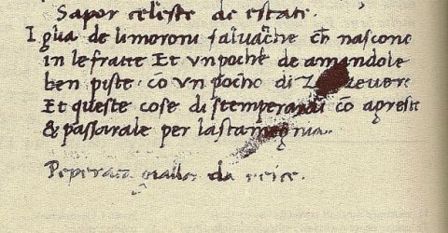 Sapor celeste de estate.
Piglia de li moroni salvatiche che nascono
in le fratte Et un poche de amandole
ben piste. cō un pocho di Zenzevero
Et queste cose distemperarai cō agresto
& passarale per la stamegnia.
Peperata gialla da